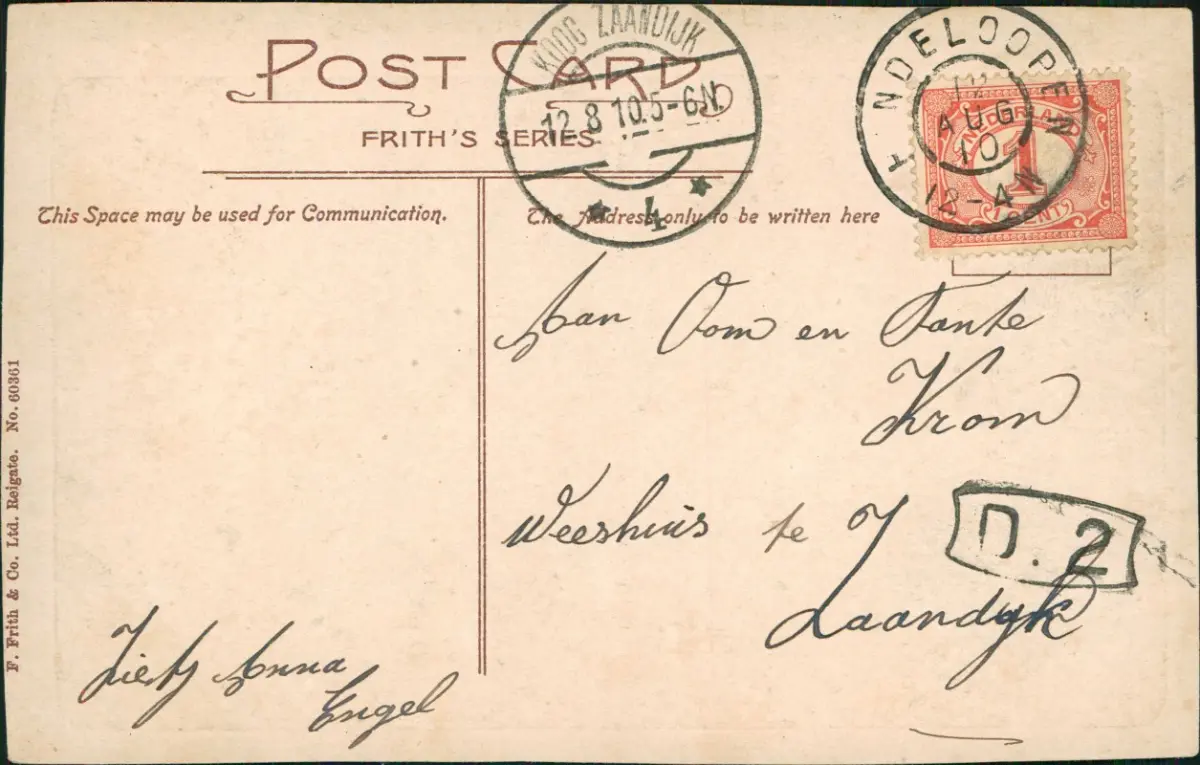 POST CARD
FRITH'S SERIES
KOOG ZAANDIJK
12.8 10.5-6N.
4
HINDELOOPEN
12
AUG
10
12-4N
NEDERLAND
1
1 CENT
This Space may be used for Communication.
The Address only to be written here
Aan Oom en Tante
Krom
Weeshuis te
Zaandyk
D. 2
Anna
Engel
F. Frith & Co. Ltd. Reigate. No. 60361